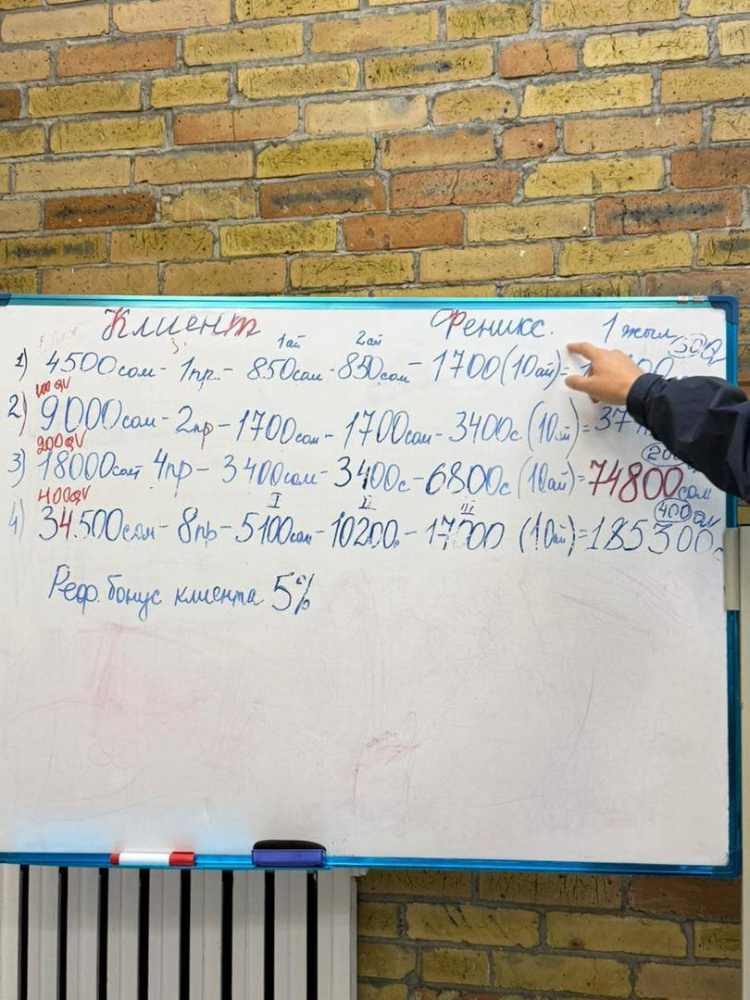 Клиент Феникс. 1 жыл
1ай 2ай 50QV
1) 4500сом - 1пр. - 850сом - 850сом - 1700 (10ай) =
100QV
2) 9000сом - 2пр - 1700сом - 1700сом - 3400с (10ай) = 37
200QV
3) 18000сом 4пр - 3400сом - 3400с - 6800с (10ай) = 74800сом
400QV I II III 400
4) 34.500сом - 8пр - 5100сом - 10200с - 17000 (10ай) = 185300с
Реф. бонус клиента 5%